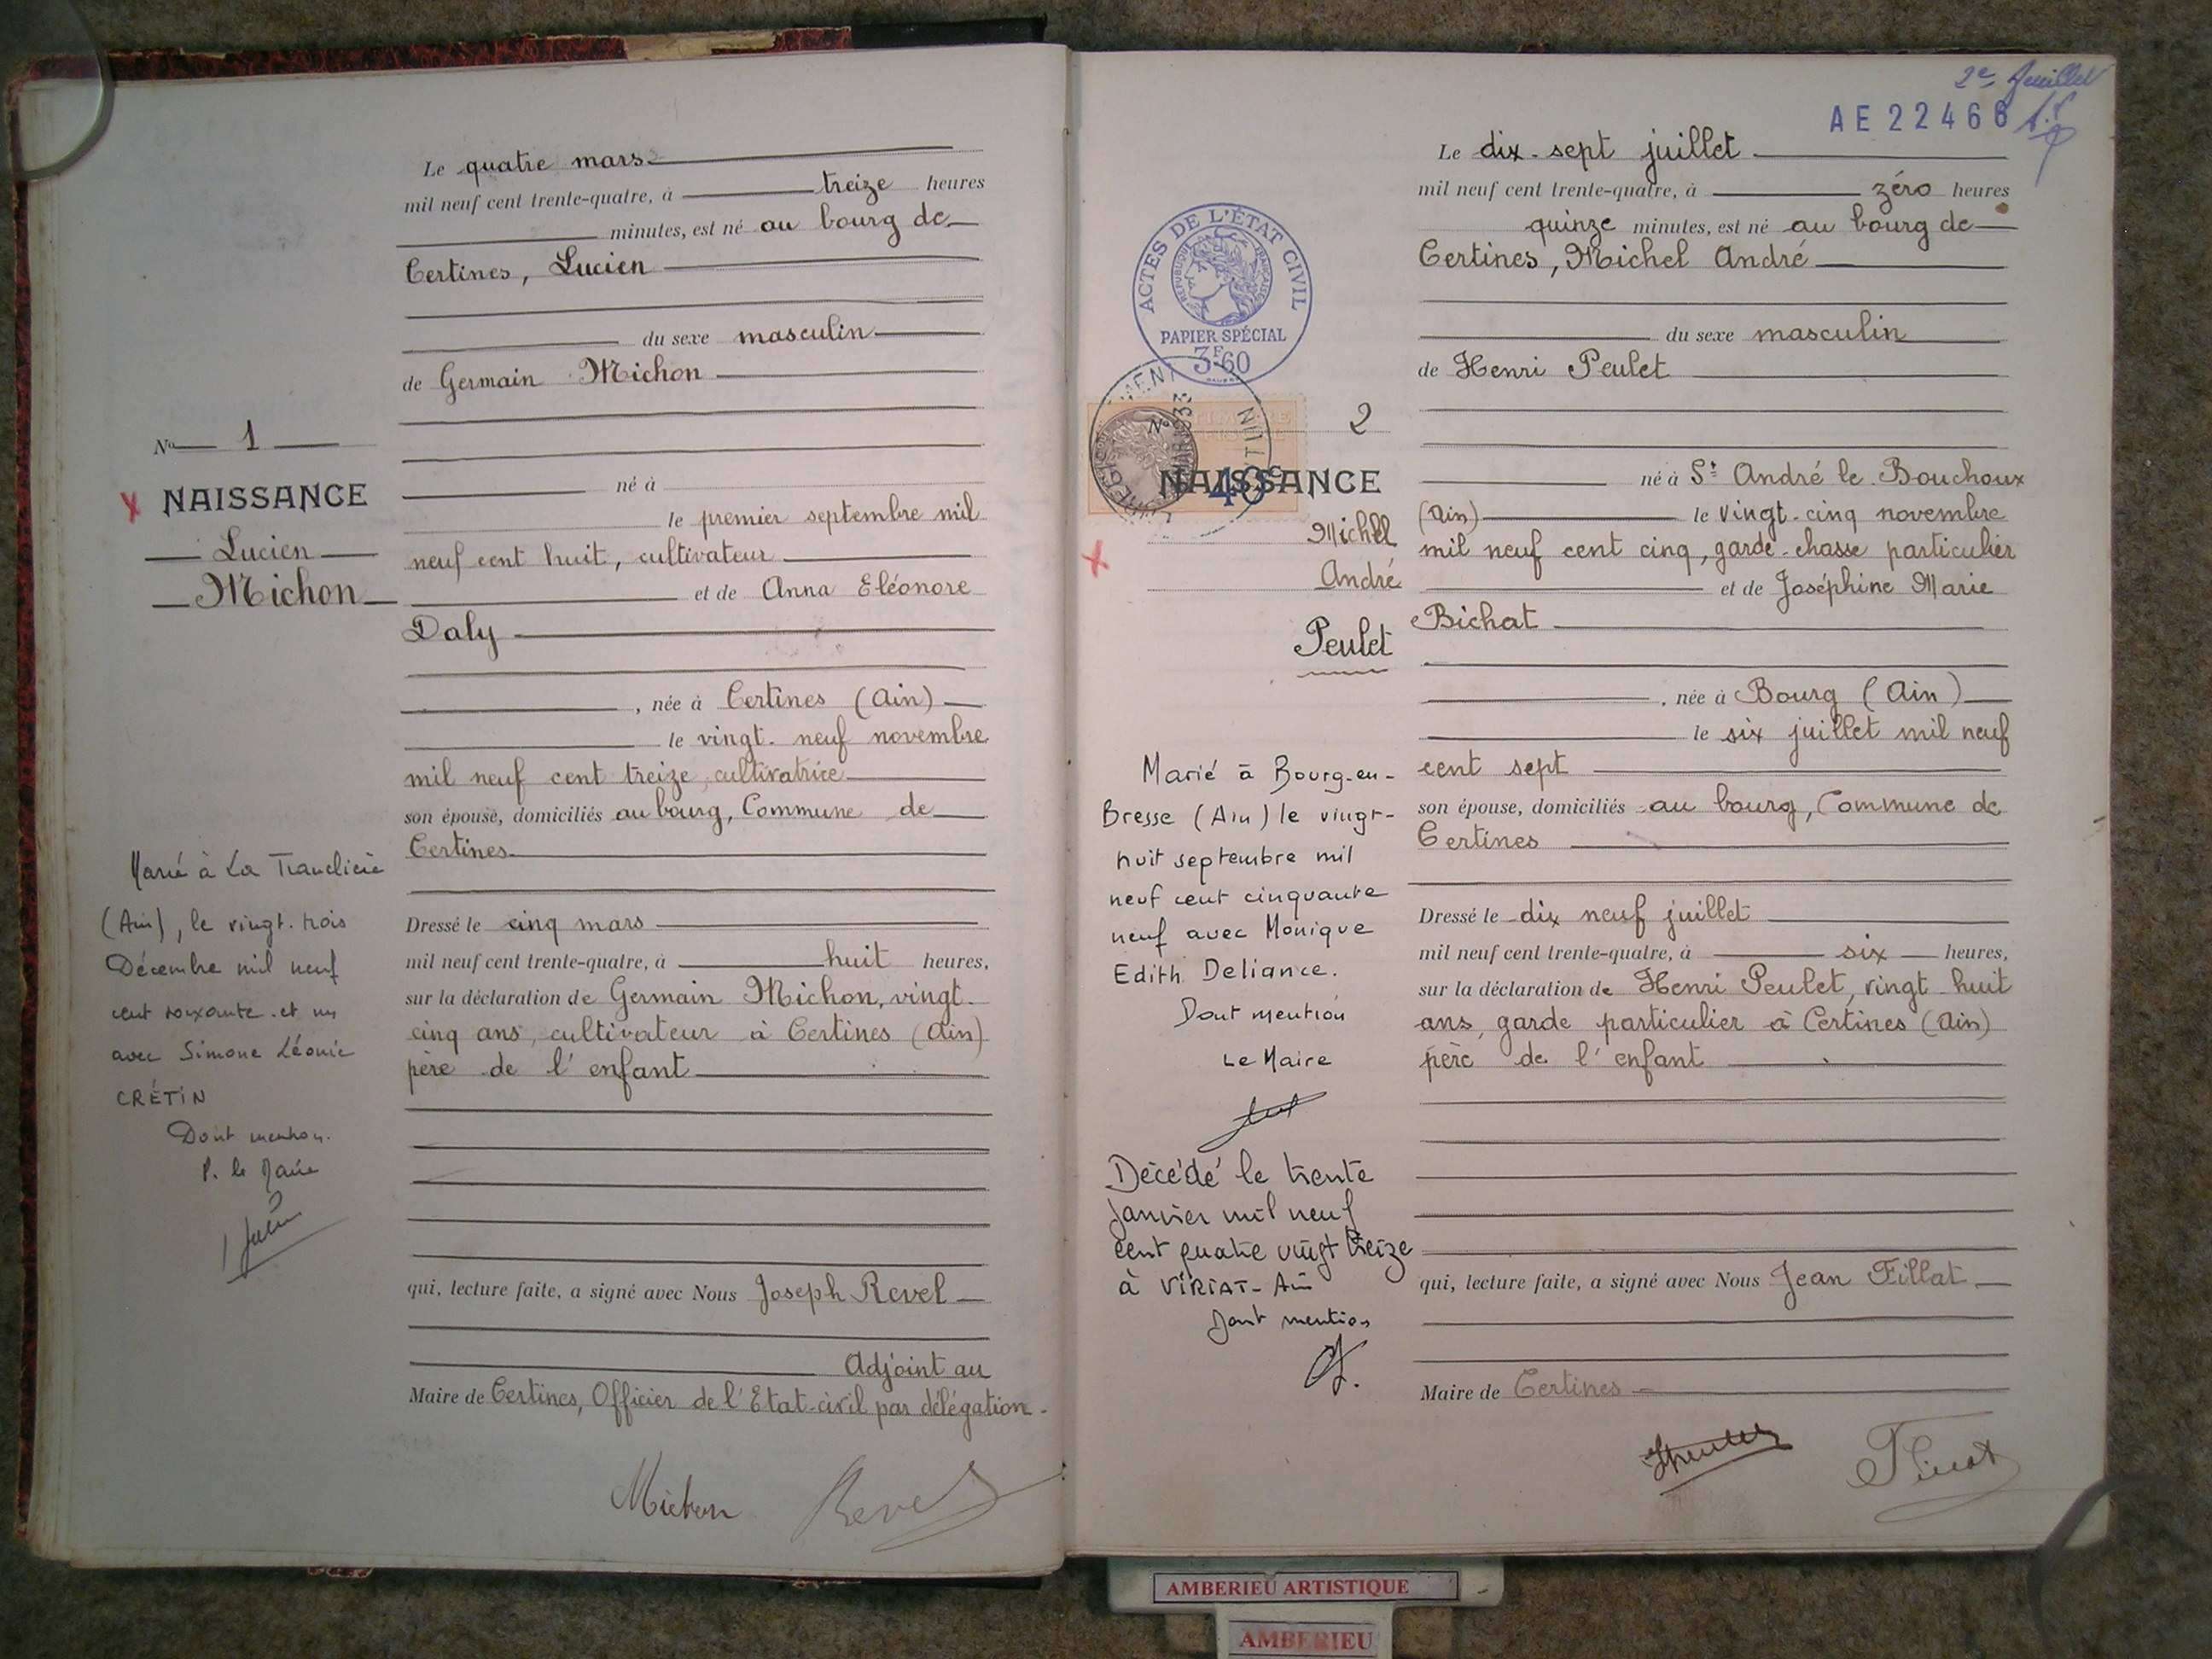 Le quatre mars
mil neuf cent trente-quatre, à treize heures
minutes, est né au bourg de
Certines, Lucien
du sexe masculin
de Germain Michon
né à
le premier septembre mil
neuf cent huit, cultivateur
et de Anna Eléonore
Daly
, née à Certines (Ain)
le vingt-neuf novembre
mil neuf cent treize, cultivatrice
son épouse, domiciliés au bourg, Commune de
Certines
Dressé le cinq mars
mil neuf cent trente-quatre, à huit heures,
sur la déclaration de Germain Michon, vingt-
cinq ans, cultivateur à Certines (Ain)
père de l'enfant
qui, lecture faite, a signé avec Nous Joseph Revel
Adjoint au
Maire de Certines, Officier de l'Etat-civil par délégation.
Michon Revel
No 1
NAISSANCE
Lucien
Michon
Marié à La Tranclière
(Ain), le vingt-trois
Décembre mil neuf
cent soixante-et un
avec Simone Léonie
CRÉTIN
Dont mention.
P. le Maire
2e feuillet
AE 22466
Le dix-sept juillet
mil neuf cent trente-quatre, à zéro heures
quinze minutes, est né au bourg de
Certines, Michel André
du sexe masculin
de Henri Peulet
né à St André le Bouchoux
(Ain) le vingt-cinq novembre
mil neuf cent cinq, garde-chasse particulier
et de Joséphine Marie
Bichat
, née à Bourg (Ain)
le six juillet mil neuf
cent sept
son épouse, domiciliés au bourg, Commune de
Certines
Dressé le dix neuf juillet
mil neuf cent trente-quatre, à six heures,
sur la déclaration de Henri Peulet, vingt-huit
ans, garde particulier à Certines (Ain)
père de l'enfant
qui, lecture faite, a signé avec Nous Jean Fillat
Maire de Certines
ACTES DE L'ÉTAT CIVIL
RÉPUBLIQUE FRANÇAISE
PAPIER SPÉCIAL
3F60
No 2
NAISSANCE
40c
Michel
André
Peulet
Marié à Bourg-en-
Bresse (Ain) le vingt-
huit septembre mil
neuf cent cinquante
neuf avec Monique
Edith Deliance.
Dont mention
Le Maire
Décédé le trente
janvier mil neuf
cent quatre vingt treize
à VIRIAT-Ain
Dont mention
AMBERIEU ARTISTIQUE
AMBERIEU